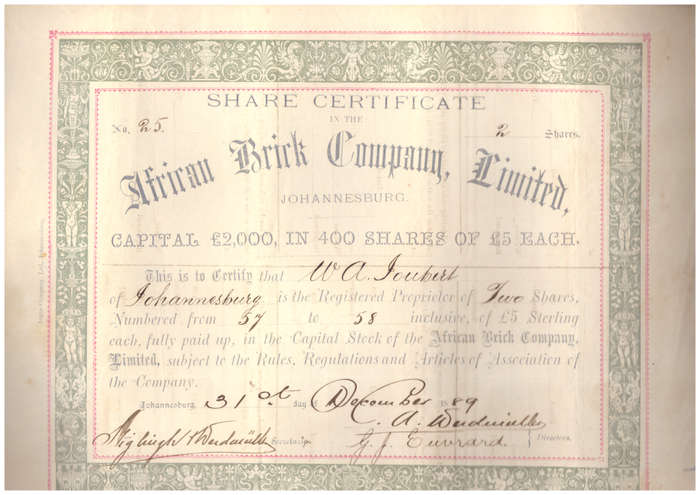 SHARE CERTIFICATE
IN THE
No. 25. 2 Shares.
African Brick Company, Limited,
JOHANNESBURG.
CAPITAL £2,000, IN 400 SHARES OF £5 EACH.
This is to Certify that W. A. Joubert
of Johannesburg is the Registered Proprietor of Two Shares,
Numbered from 57 to 58 inclusive, of £5 Sterling
each, fully paid up, in the Capital Stock of the African Brick Company,
Limited, subject to the Rules, Regulations and Articles of Association of
the Company.
Johannesburg, 31st day of December 1889
Secretaries
Directors.